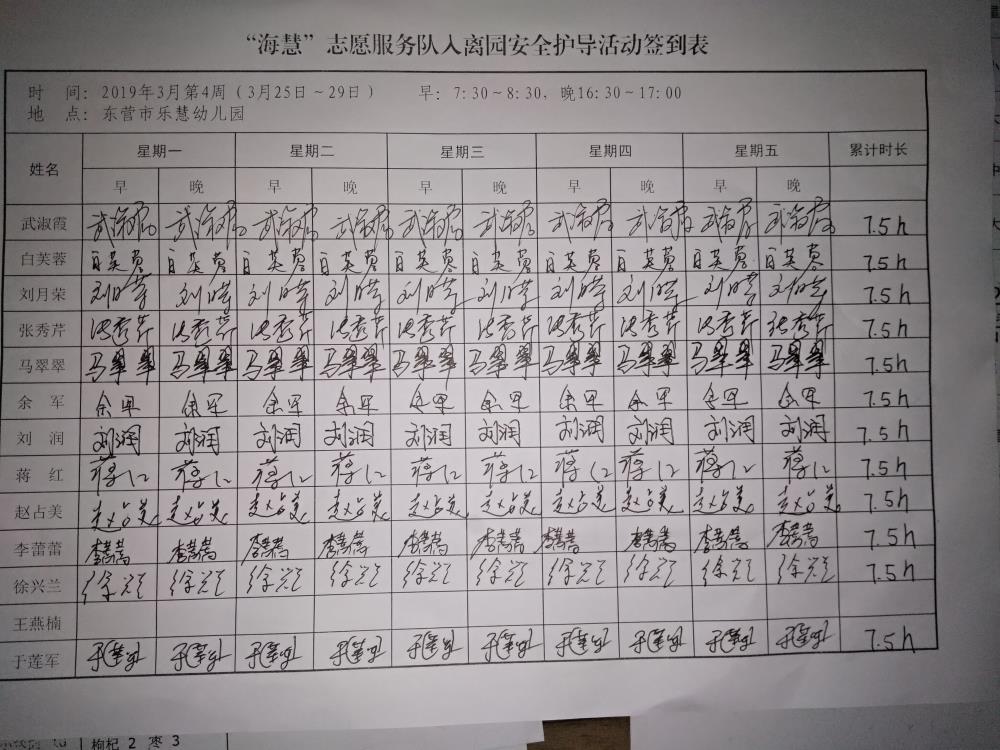 “海慧”志愿服务队入离园安全护导活动签到表
时 间：2019年3月第4周（3月25日～29日） 早：7:30～8:30，晚16:30～17:00
地 点：东营市乐慧幼儿园
姓名 星期一 星期二 星期三 星期四 星期五 累计时长
早 晚 早 晚 早 晚 早 晚 早 晚
武淑霞 武淑霞 武淑霞 武淑霞 武淑霞 武淑霞 武淑霞 武淑霞 武淑霞 武淑霞 武淑霞 7.5h
白芙蓉 白芙蓉 白芙蓉 白芙蓉 白芙蓉 白芙蓉 白芙蓉 白芙蓉 白芙蓉 白芙蓉 白芙蓉 7.5h
刘月荣 刘月荣 刘月荣 刘月荣 刘月荣 刘月荣 刘月荣 刘月荣 刘月荣 刘月荣 刘月荣 7.5h
张秀芹 张秀芹 张秀芹 张秀芹 张秀芹 张秀芹 张秀芹 张秀芹 张秀芹 张秀芹 张秀芹 7.5h
马翠翠 马翠翠 马翠翠 马翠翠 马翠翠 马翠翠 马翠翠 马翠翠 马翠翠 马翠翠 马翠翠 7.5h
余 军 余军 余军 余军 余军 余军 余军 余军 余军 余军 余军 7.5h
刘 润 刘润 刘润 刘润 刘润 刘润 刘润 刘润 刘润 刘润 刘润 7.5h
蒋 红 蒋红 蒋红 蒋红 蒋红 蒋红 蒋红 蒋红 蒋红 蒋红 蒋红 7.5h
赵占美 赵占美 赵占美 赵占美 赵占美 赵占美 赵占美 赵占美 赵占美 赵占美 赵占美 7.5h
李蕾蕾 李蕾蕾 李蕾蕾 李蕾蕾 李蕾蕾 李蕾蕾 李蕾蕾 李蕾蕾 李蕾蕾 李蕾蕾 李蕾蕾 7.5h
徐兴兰 徐兴兰 徐兴兰 徐兴兰 徐兴兰 徐兴兰 徐兴兰 徐兴兰 徐兴兰 徐兴兰 徐兴兰 7.5h
王燕楠
于莲军 于莲军 于莲军 于莲军 于莲军 于莲军 于莲军 于莲军 于莲军 于莲军 于莲军 7.5h
枸杞 2 枣 3